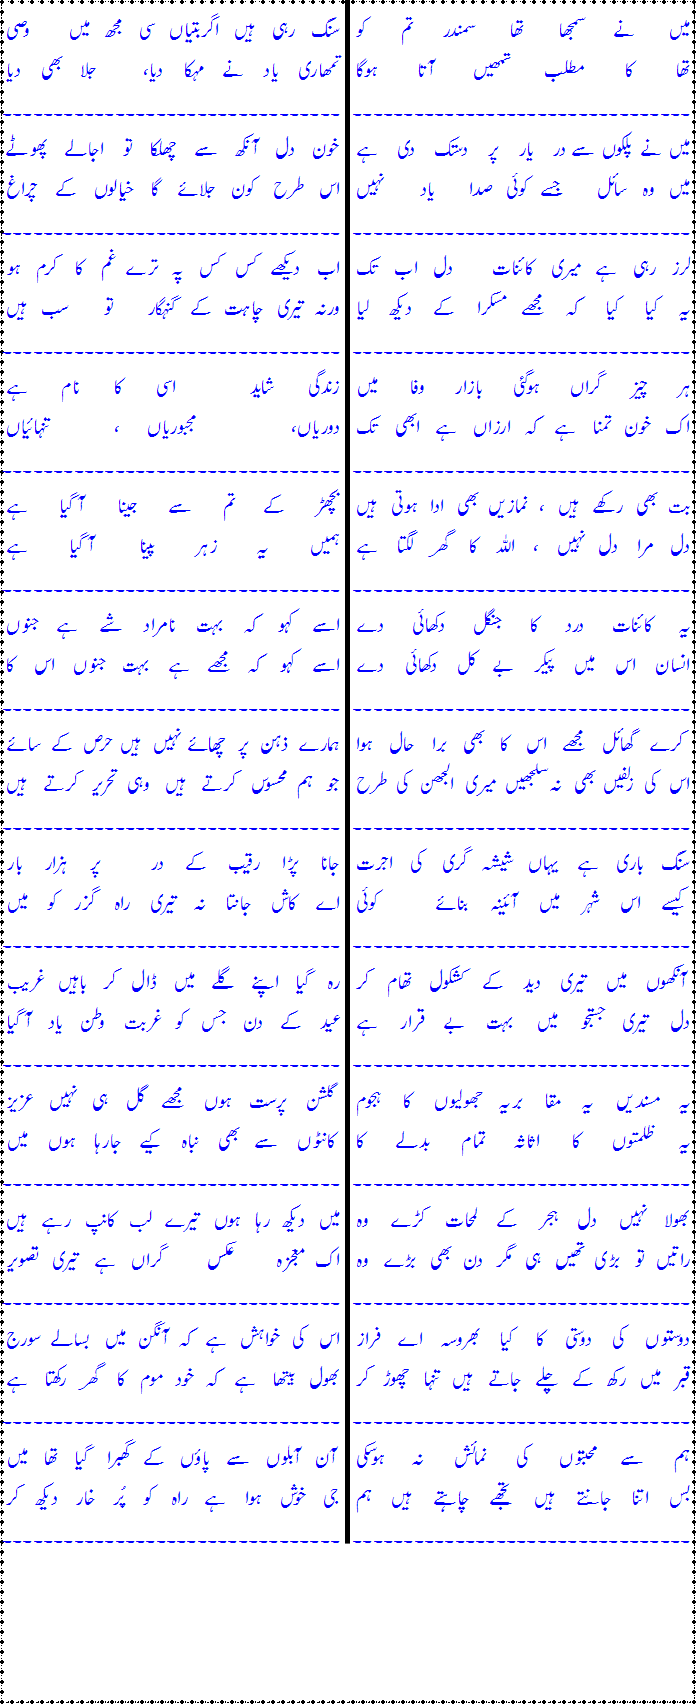 میں نے سمجھا تھا سمندر تم کو
تھا کا مطلب تمھیں آتا ہوگا
میں نے پلکوں سے در یار پر دستک دی ہے
میں وہ سائل جسے کوئی صدا یاد نہیں
لرز رہی ہے میری کائنات دل اب تک
یہ کیا کیا کہ مجھے مسکرا کے دیکھ لیا
ہر چیز گراں ہوگئی بازار وفا میں
اک خون تمنا ہے کہ ارزاں ہے ابھی تک
بت بھی رکھے ہیں ، نمازیں بھی ادا ہوتی ہیں
دل مرا دل نہیں ، اللہ کا گھر لگتا ہے
یہ کائنات درد کا جنگل دکھائی دے
انسان اس میں پیکر بے کل دکھائی دے
کرے گھائل مجھے اس کا بھی برا حال ہوا
اس کی زلفیں بھی نہ سلجھیں میری الجھن کی طرح
سنگ باری ہے یہاں شیشہ گری کی اجرت
کیسے اس شہر میں آئینہ بنائے کوئی
آنکھوں میں تیری دید کے کشکول تھام کر
دل تیری جستجو میں بہت بے قرار ہے
یہ مسندیں یہ مقا بریہ جھولیوں کا ہجوم
یہ ظلمتوں کا اثاثہ تمام بدلے کا
بھولا نہیں دل ہجر کے لمحات کڑے وہ
راتیں تو بڑی تھیں ہی مگر دن بھی بڑے وہ
دوستوں کی دوستی کا کیا بھروسہ اے فراز
قبر میں رکھ کے چلے جاتے ہیں تنہا چھوڑ کر
ہم سے محبتوں کی نمائش نہ ہوسکی
بس اتنا جانتے ہیں تجھے چاہتے ہیں ہم
سنگ رہی ہیں اگربتیاں سی مجھ میں وصی
تمھاری یاد نے مہکا دیا، جلا بھی دیا
خون دل آنکھ سے چھلکا تو اجالے پھوٹے
اس طرح کون جلائے گا خیالوں کے چراغ
اب دیکھے کس کس پہ ترے غم کا کرم ہو
ورنہ تیری چاہت کے گنہگار تو سب ہیں
زندگی شاید اسی کا نام ہے
دوریاں، مجبوریاں ، تنہائیاں
بچھڑ کے تم سے جینا آگیا ہے
ہمیں یہ زہر پینا آگیا ہے
اسے کہو کہ بہت نامراد شے ہے جنوں
اسے کہو کہ مجھے ہے بہت جنوں اس کا
ہمارے ذہن پر چھائے نہیں ہیں حرص کے سائے
جو ہم محسوس کرتے ہیں وہی تحریر کرتے ہیں
جانا پڑا رقیب کے در پر ہزار بار
اے کاش جانتا نہ تیری راہ گزر کو میں
رہ گیا اپنے گلے میں ڈال کر باہیں غریب
عید کے دن جس کو غربت وطن یاد آگیا
گلشن پرست ہوں مجھے گل ہی نہیں عزیز
کانٹوں سے بھی نباہ کیے جارہا ہوں میں
میں دیکھ رہا ہوں تیرے لب کانپ رہے ہیں
اک معجزہ عکس گراں ہے تیری تصویر
اس کی خواہش ہے کہ آنگن میں بسالے سورج
بھول بیٹھا ہے کہ خود موم کا گھر رکھتا ہے
آن آبلوں سے پاؤں کے گھبرا گیا تھا میں
جی خوش ہوا ہے راہ کو پُر خار دیکھ کر